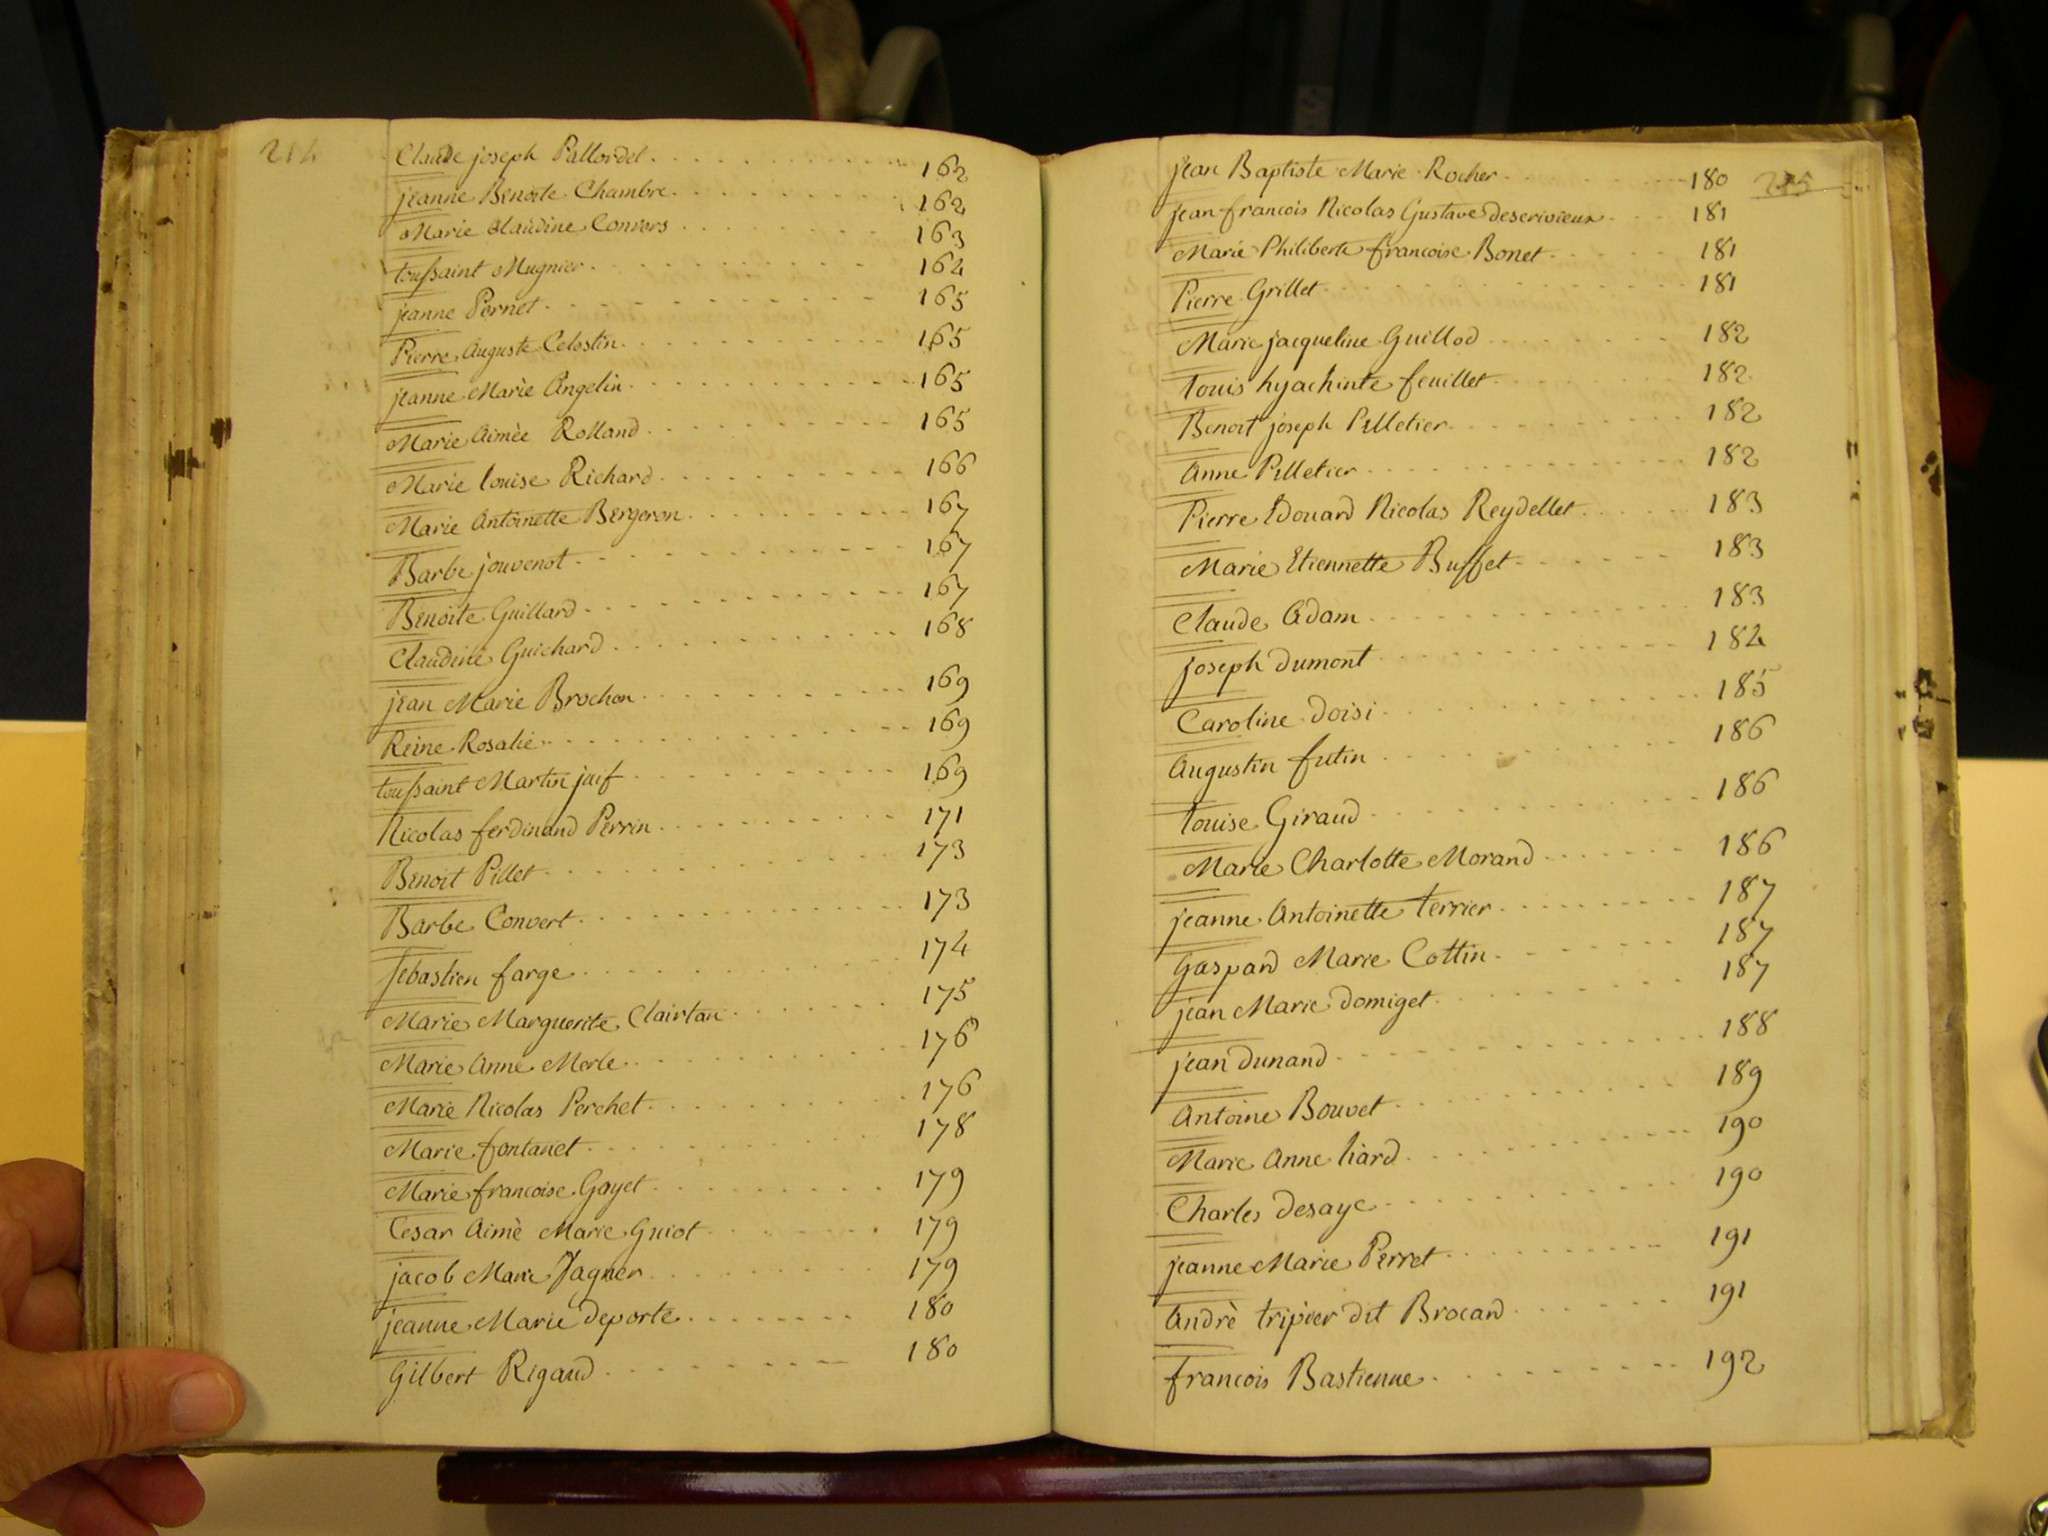 214
Claude joseph Pallordet 162
jeanne Benoite Chambre 162
Marie Claudine Convers 163
toussaint Mugnier 164
jeanne Pernet 165
Pierre Auguste Celestin 165
jeanne Marie Angelin 165
Marie Aimèe Rolland 165
Marie louise Richard 166
Marie Antoinette Bergeron 167
Barbe jouvenot 167
Benoite Guillard 167
Claudine Guichard 168
jean Marie Brochon 169
Reine Rosalie 169
toussaint Martin juif 169
Nicolas ferdinand Perrin 171
Benoit Pillet 173
Barbe Convert 173
Sebastien farge 174
Marie Marguerite Clairtan 175
Marie Anne Merle 176
Marie Nicolas Perchet 176
Marie fontanet 178
Marie francoise Gayet 179
Cesar Aimè Marie Guiot 179
jacob Marie 179
jeanne Marie deporte 180
Gilbert Rigaud 180
215
jean Baptiste Marie Rocher 180
jean francois Nicolas Gustave descrivieux 181
Marie Philiberte francoise Bonet 181
Pierre Grillet 181
Marie jacqueline Guillod 182
Louis hyachinte feuillet 182
Benoit joseph Pelletier 182
Anne Pelletier 182
Pierre Edouard Nicolas Reydellet 183
Marie Etiennette Buffet 183
Claude Adam 183
joseph dumont 184
Caroline doisi 185
Augustin futin 186
Louise Giraud 186
Marie Charlotte Morand 186
jeanne Antoinette terrier 187
Gaspard Marie Cottin 187
jean Marie domiget 187
jean dunand 188
Antoine Bouvet 189
Marie Anne liard 190
Charles desaye 190
jeanne Marie Perret 191
Andrè tripier dit Brocard 191
francois Bastienne 192